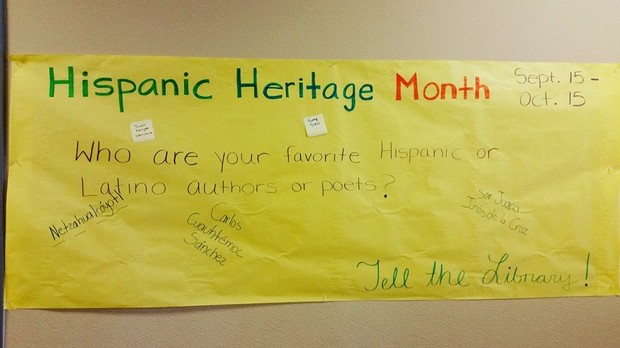 Hispanic Heritage Month
Sept. 15 -
Oct. 15
Who are your favorite Hispanic or
Latino authors or poets?
Netzahualcóyotl
Carlos
Cuauhtémoc
Sánchez
Sor Juana
Inés de la Cruz
Tell the Library!